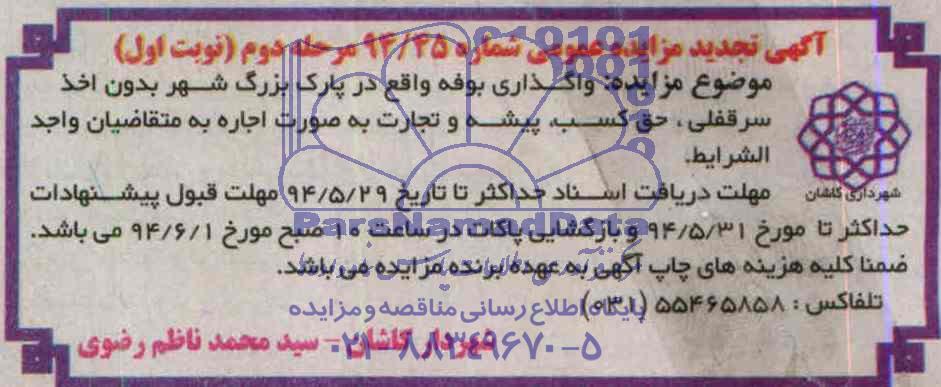 آگهی تجدید مزایده عمومی شماره ۹۴/۳۵ مرحله دوم (نوبت اول)
موضوع مزایده: واگذاری بوفه واقع در پارک بزرگ شهر بدون اخذ
سرقفلی، حق کسب، پیشه و تجارت به صورت اجاره به متقاضیان واجد
الشرایط.
شهرداری کاشان
مهلت دریافت اسناد حداکثر تا تاریخ ۹۴/۵/۲۹ مهلت قبول پیشنهادات
حداکثر تا مورخ ۹۴/۵/۳۱ و بازگشایی پاکات در ساعت ۱۰ صبح مورخ ۹۴/۶/۱ می باشد.
ضمنا کلیه هزینه های چاپ آگهی به عهده برنده مزایده می باشد.
تلفاکس: ۵۵۴۶۵۸۵۸ (۰۳۱)
شهردار کاشان - سید محمد ناظم رضوی
ParsNamadData
پایگاه اطلاع رسانی مناقصه و مزایده
۰۲۱-۸۸۳۴۹۶۷۰-۵